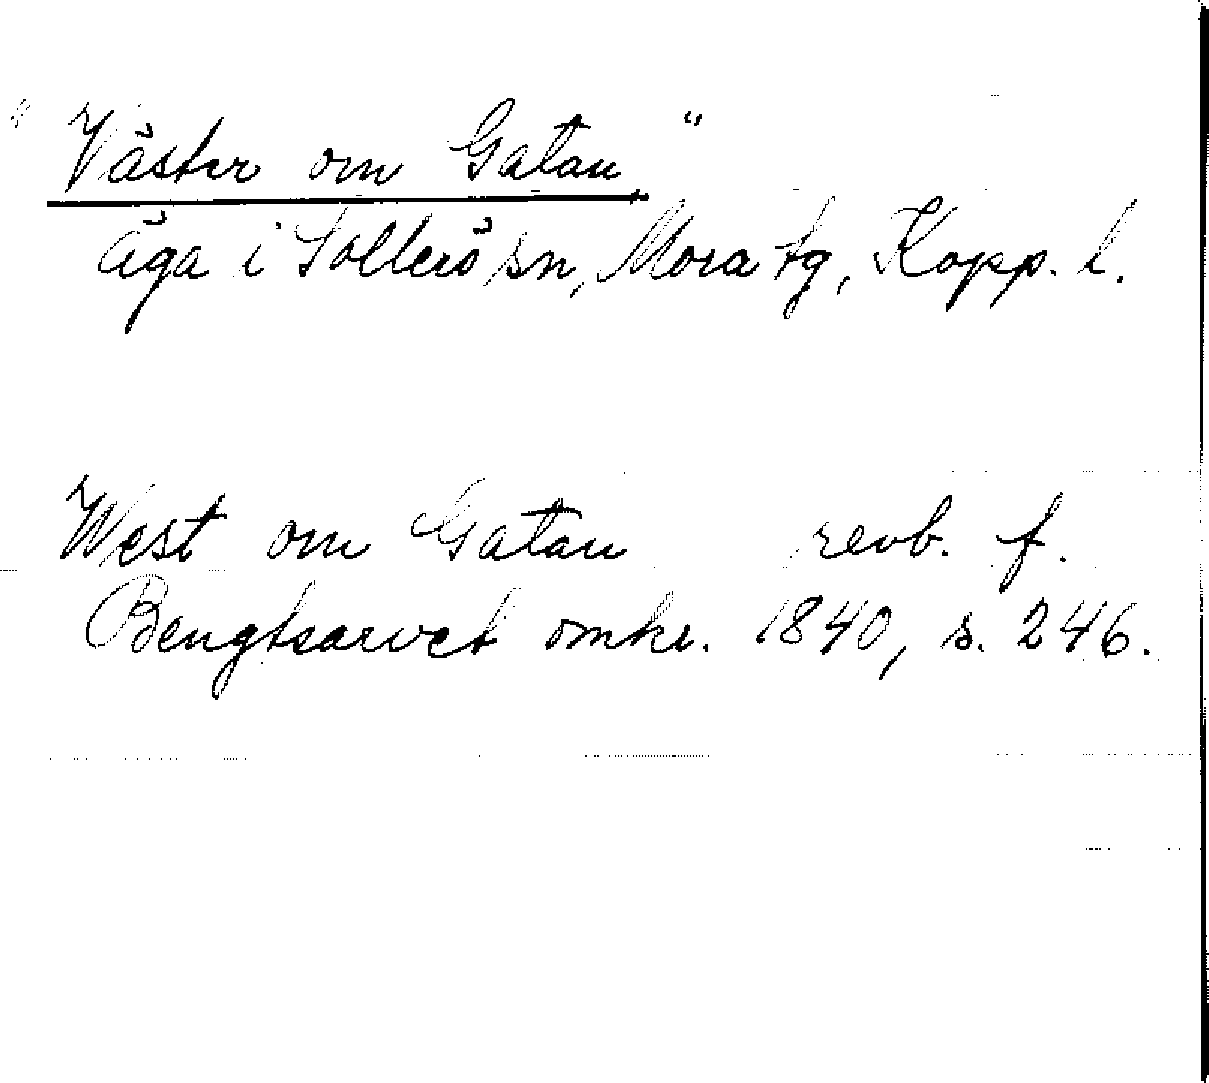 "Väster om Gatan"
äga i Sollerö sn, Mora tg, Kopp. l.
West om Gatan revb. f.
Bengtsarvet omkr. 1840, s. 246.